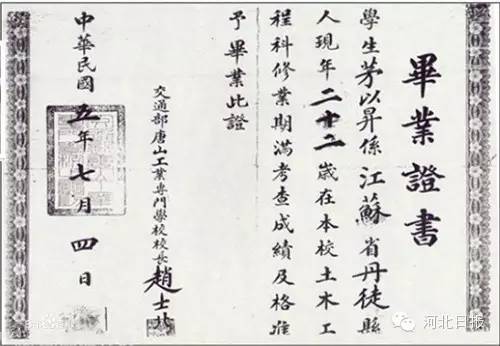 畢業證書
學生茅以昇係江蘇省丹徒縣
人現年二十二歲在本校土木工
程科修業期滿考查成績及格准
予畢業此證
交通部唐山工業專門學校校長趙士北
中華民國五年七月四日
河北日报